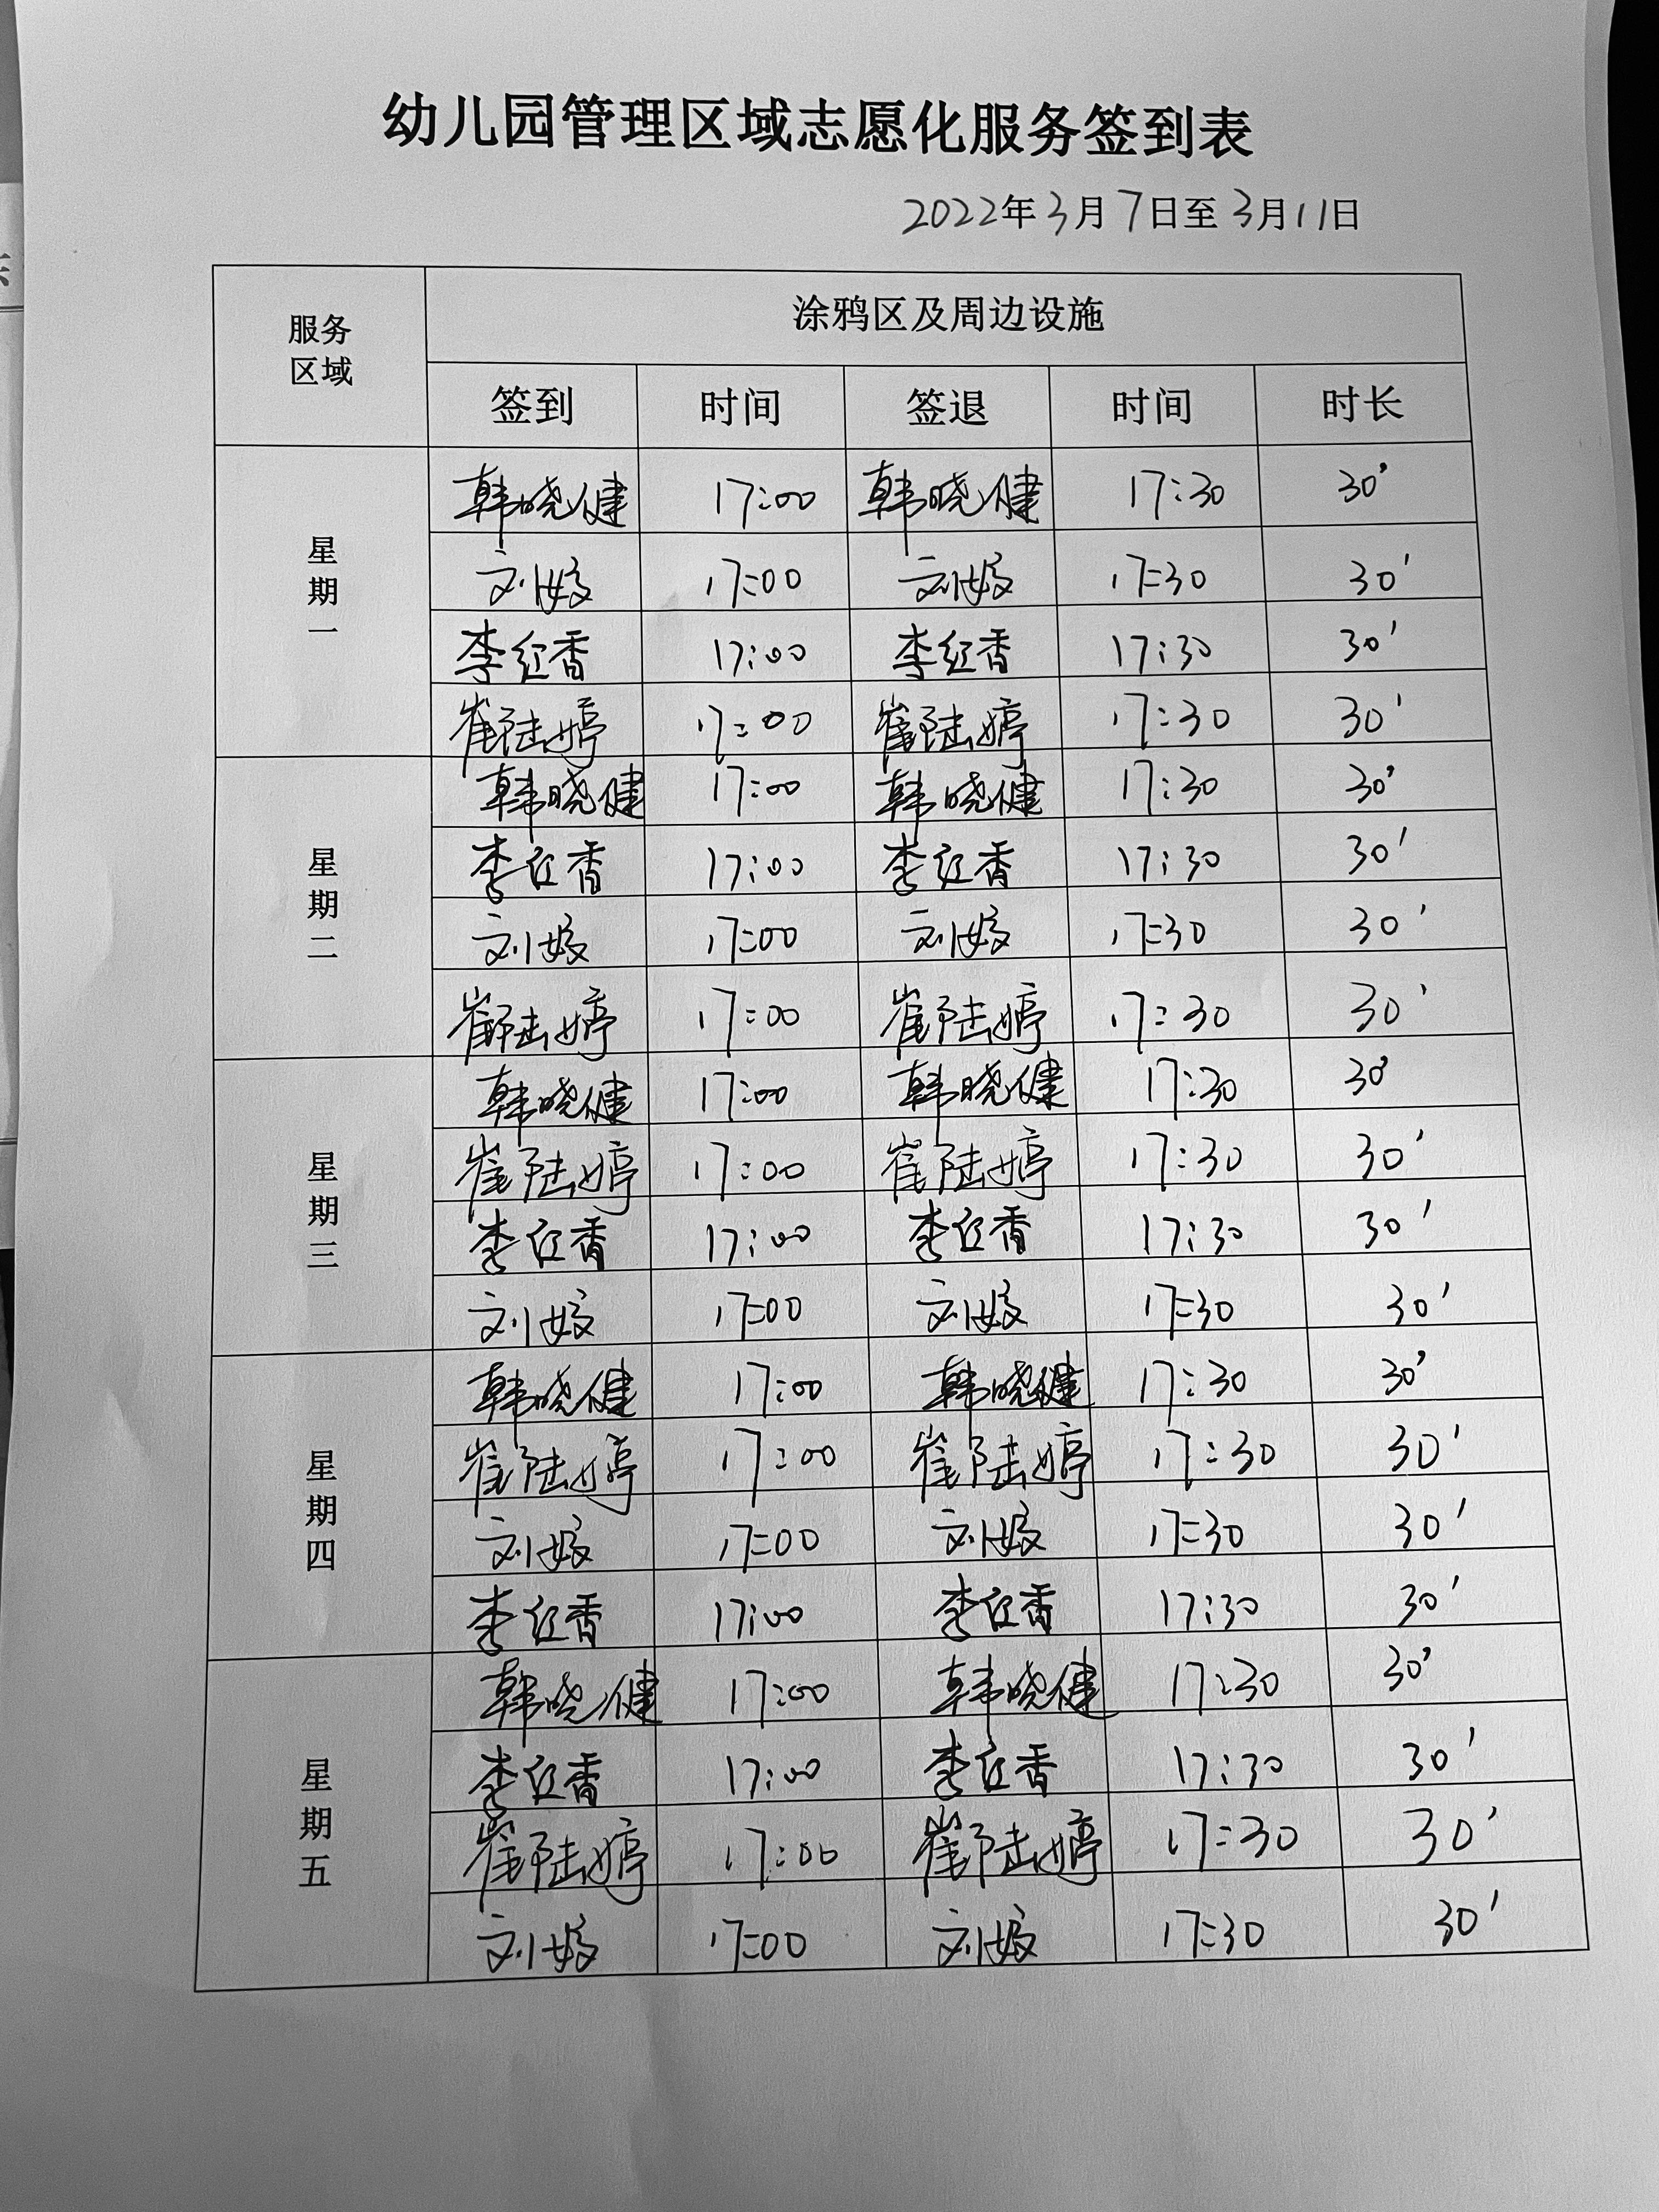 幼儿园管理区域志愿化服务签到表
2022年3月7日至3月11日
服务区域 涂鸦区及周边设施
签到 时间 签退 时间 时长
星期一
韩晓健 17:00 韩晓健 17:30 30'
刘 17:00 刘 17:30 30'
李红香 17:00 李红香 17:30 30'
崔陆婷 17:00 崔陆婷 17:30 30'
星期二
韩晓健 17:00 韩晓健 17:30 30'
李红香 17:00 李红香 17:30 30'
刘 17:00 刘 17:30 30'
崔陆婷 17:00 崔陆婷 17:30 30'
星期三
韩晓健 17:00 韩晓健 17:30 30'
崔陆婷 17:00 崔陆婷 17:30 30'
李红香 17:00 李红香 17:30 30'
刘 17:00 刘 17:30 30'
星期四
韩晓健 17:00 韩晓健 17:30 30'
崔陆婷 17:00 崔陆婷 17:30 30'
刘 17:00 刘 17:30 30'
李红香 17:00 李红香 17:30 30'
星期五
韩晓健 17:00 韩晓健 17:30 30'
李红香 17:00 李红香 17:30 30'
崔陆婷 17:00 崔陆婷 17:30 30'
刘 17:00 刘 17:30 30'